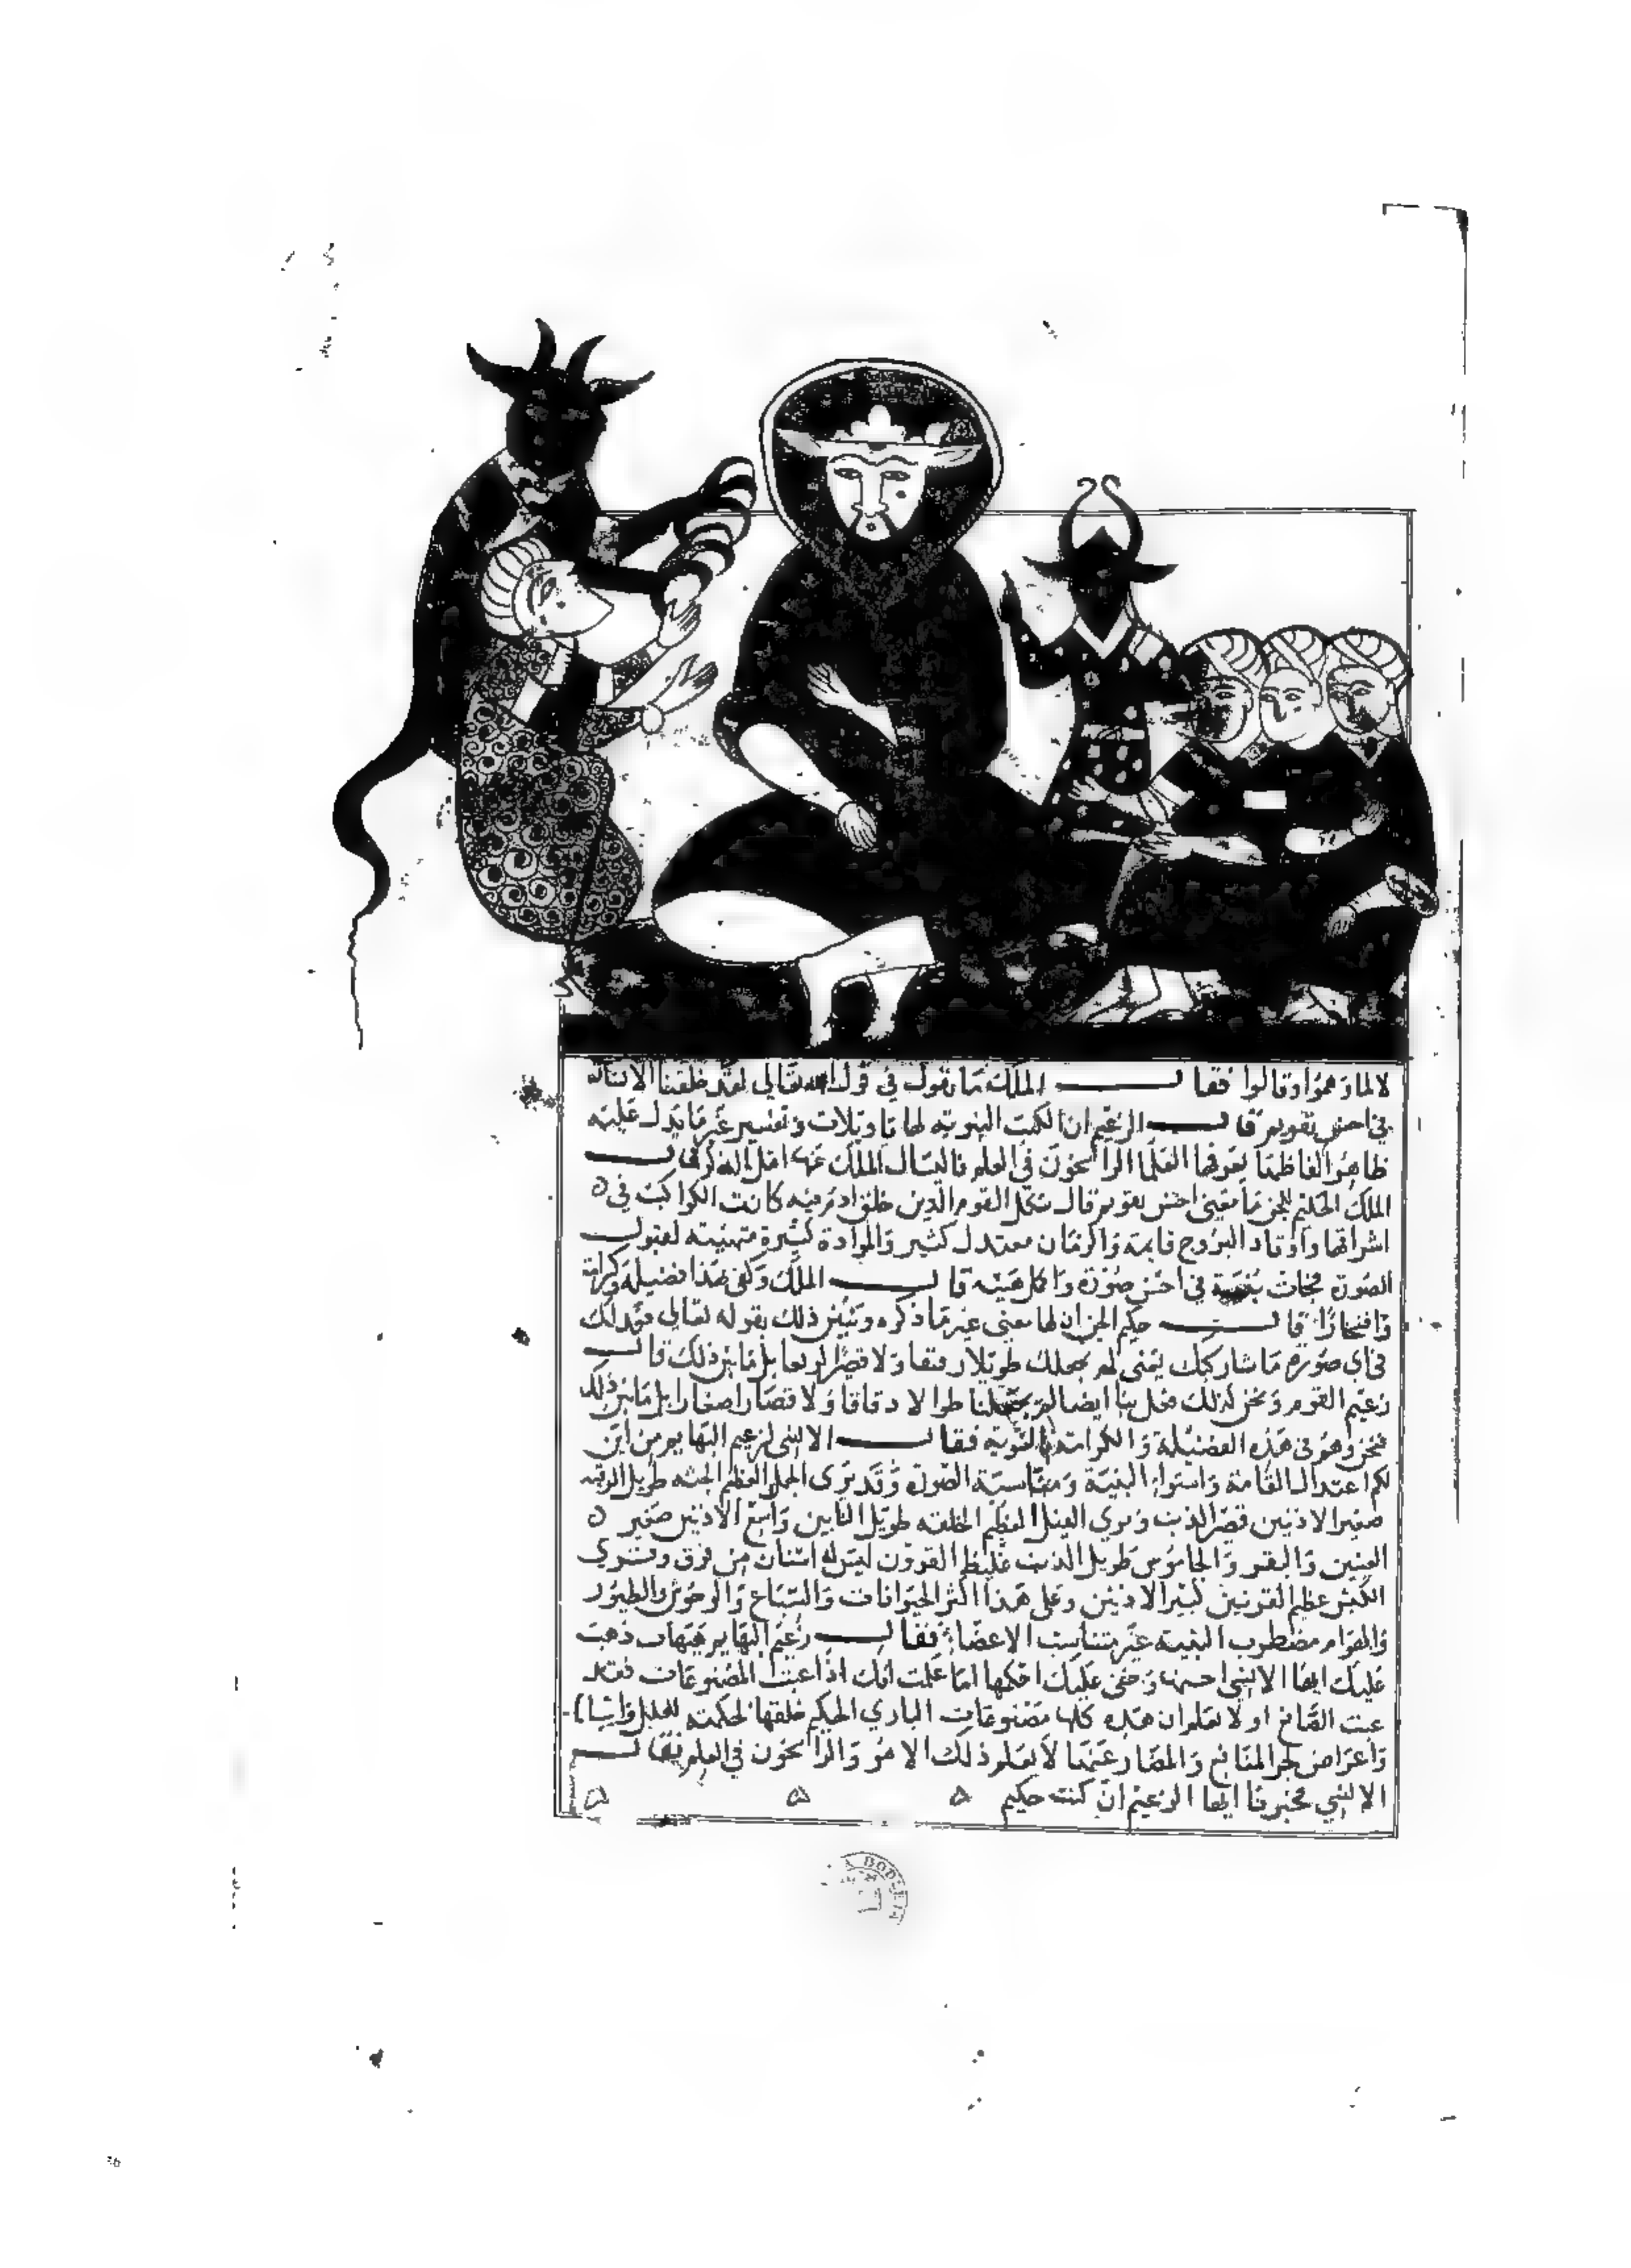 لا لما توهموا وقالوا فقال الملك ما تقول في قول الله تعالى لقد خلقنا الانسان
في احسن تقويم قال الزعيم ان الكتب النبوية لها تاويلات وتفسير غير ما يدل عليه
ظاهر الفاظها يعرفها العلما الراسخون في العلم فاليسال الملك عنها اهل الذكر قال
الملك الحكيم الجن ما معنى احسن تقويم قال كل القوم الذين خلق ادم فيه كانت الكواكب في
اشرافها واوتاد البروج قايمة والزمان معتدل كثير والموادة كثيرة متهيئة لقبول
الصورة فجات بنية في احسن صورة واكمل هيئة قال الملك وكفى بهذا فضيلة وكرامة
وافتخارا قال حكيم الجن ان لها معنى غير ما ذكره وتبين ذلك بقوله تعالى فعدلك
في اي صورة ما شا ركبك يعنى لم يجعلك طويلا رقيقا ولا قصيرا بل ما بين ذلك قال
زعيم القوم ونحن كذلك فعل بنا ايضا لم يجعلنا طوالا دقاقا ولا قصارا صغارا بل ما بين ذلك
فنحن وهم في هذه الفضيلة والكرامة بالسوية فقال الانسي لزعيم البهايم من اين
لكم اعتدال القامة واستواء البنية ومناسبة الصورة وقد نرى الجمل العظيم الجثة طويل الرقبة
صغير الاذنين قصير الذنب ونرى الفيل العظيم الخلقة طويل النابين واسع الاذنين صغير
العينين والبقر والجاموس طويل الذنب غليظ القرون ليس له اسنان من فوق ونرى
الكبش عظيم القرنين كبير الاذنين وعلى هذا اكثر الحيوانات والسباع والوحوش والطيور
والهوام مضطرب البنية غير متناسب الاعضاء فقال زعيم البهايم هيهات ذهبت
عليك ايها الانسي احسنها وخفي عليك احكمها اما علمت انك اذا عبت المصنوعات فقد
عبت الصانع او لا تعلم ان هذه كلها مصنوعات الباري الحكيم خلقها لحكمته
واعراض لجر المنافع والمضار عنها لا يعلم ذلك الا هو والراسخون في العلم فقال
الانسي فخبرنا ايها الزعيم ان كنت حكيم